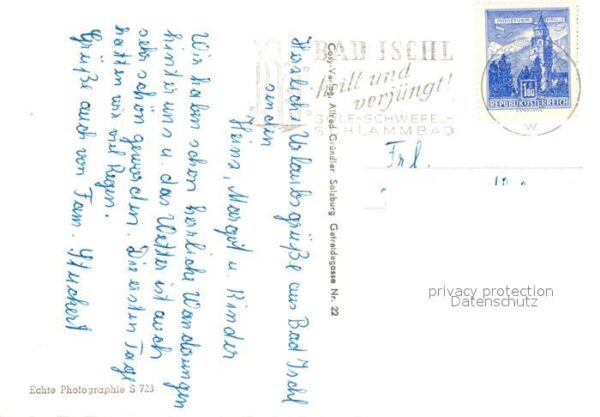 Herzliche Urlaubsgrüße aus Bad Ischl
senden
Heins, Margit u. Kinder
Wir haben schon herrliche Wanderungen
hinter uns u. das Wetter ist auch
sehr schön geworden. Die ersten Tage
hatten wir viel Regen.
Grüße auch von Fam. Stuchert
Cosy-Verlag Alfred Gründler Salzburg Getreidegasse Nr. 22
Echte Photographie S 723
BAD ISCHL
heilt und
verjüngt!
SOLE-SCHWEFEL-
SCHLAMMBAD
MÜNZTURM HALL i. T.
1.80
REPUBLIK ÖSTERREICH
W
Frl.
privacy protection
Datenschutz